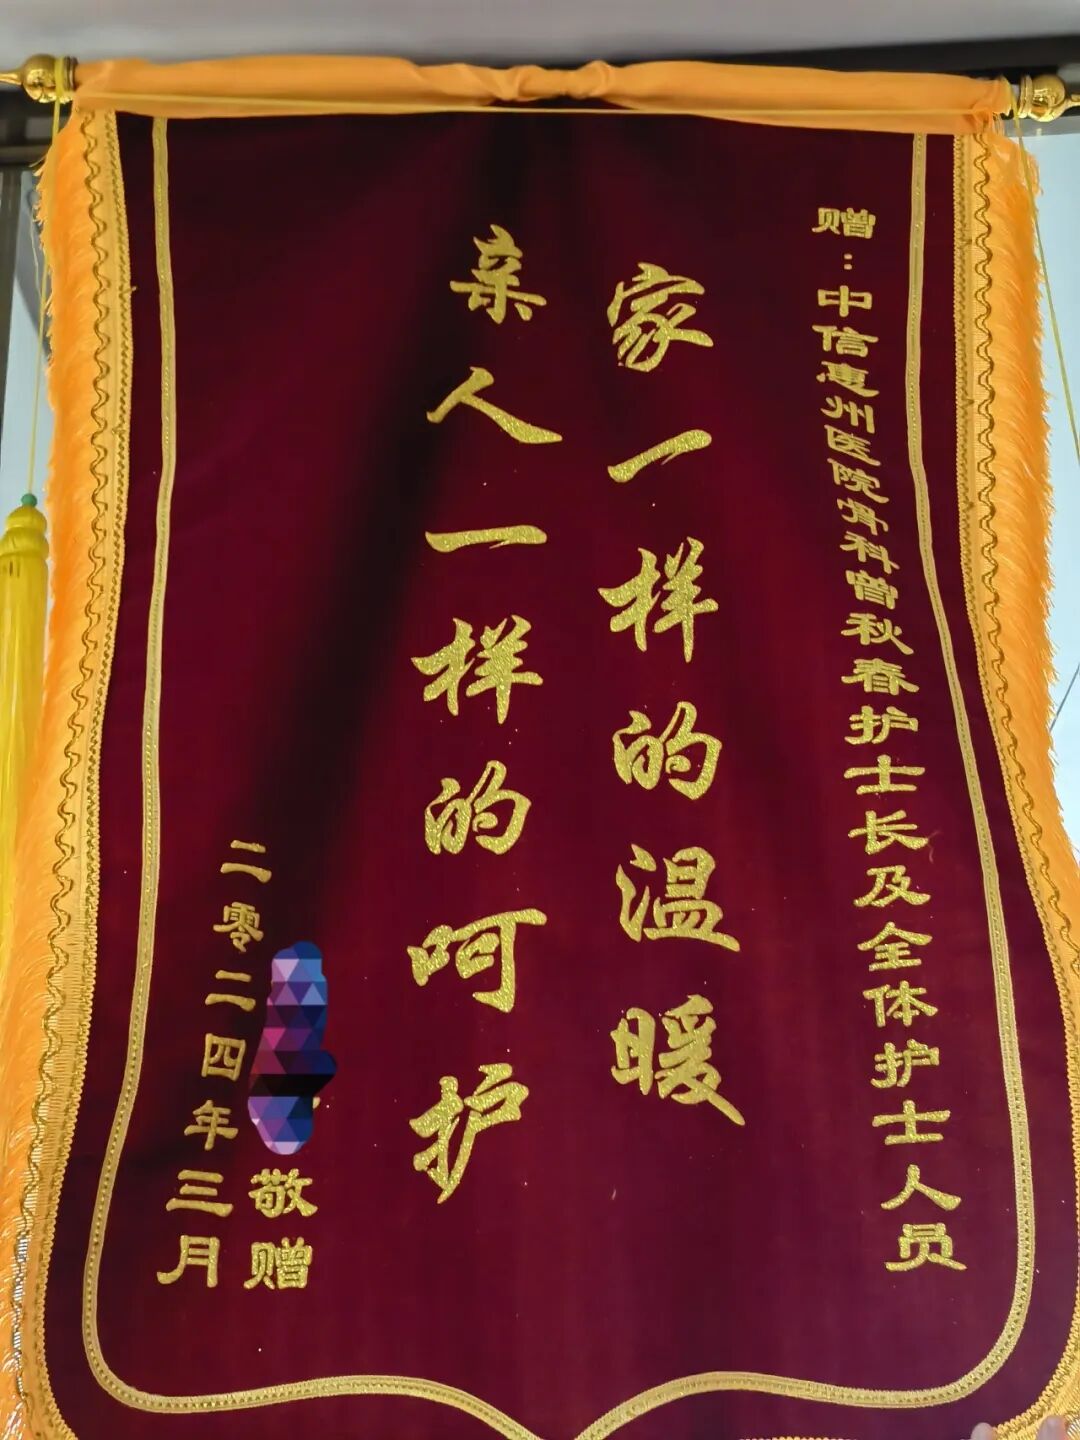 赠：中信惠州医院骨科曾秋春护士长及全体护士人员
家一样的温暖
亲人一样的呵护
敬赠
二零二四年三月